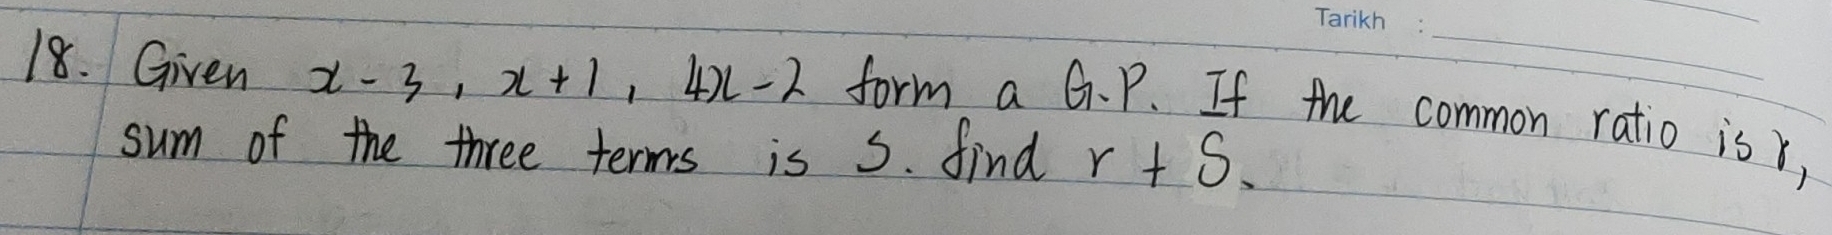 Tarikh :
18. Given x-3, x+1, 4x-2 form a G.P. If the common ratio is r,
sum of the three terms is S. find r + S.